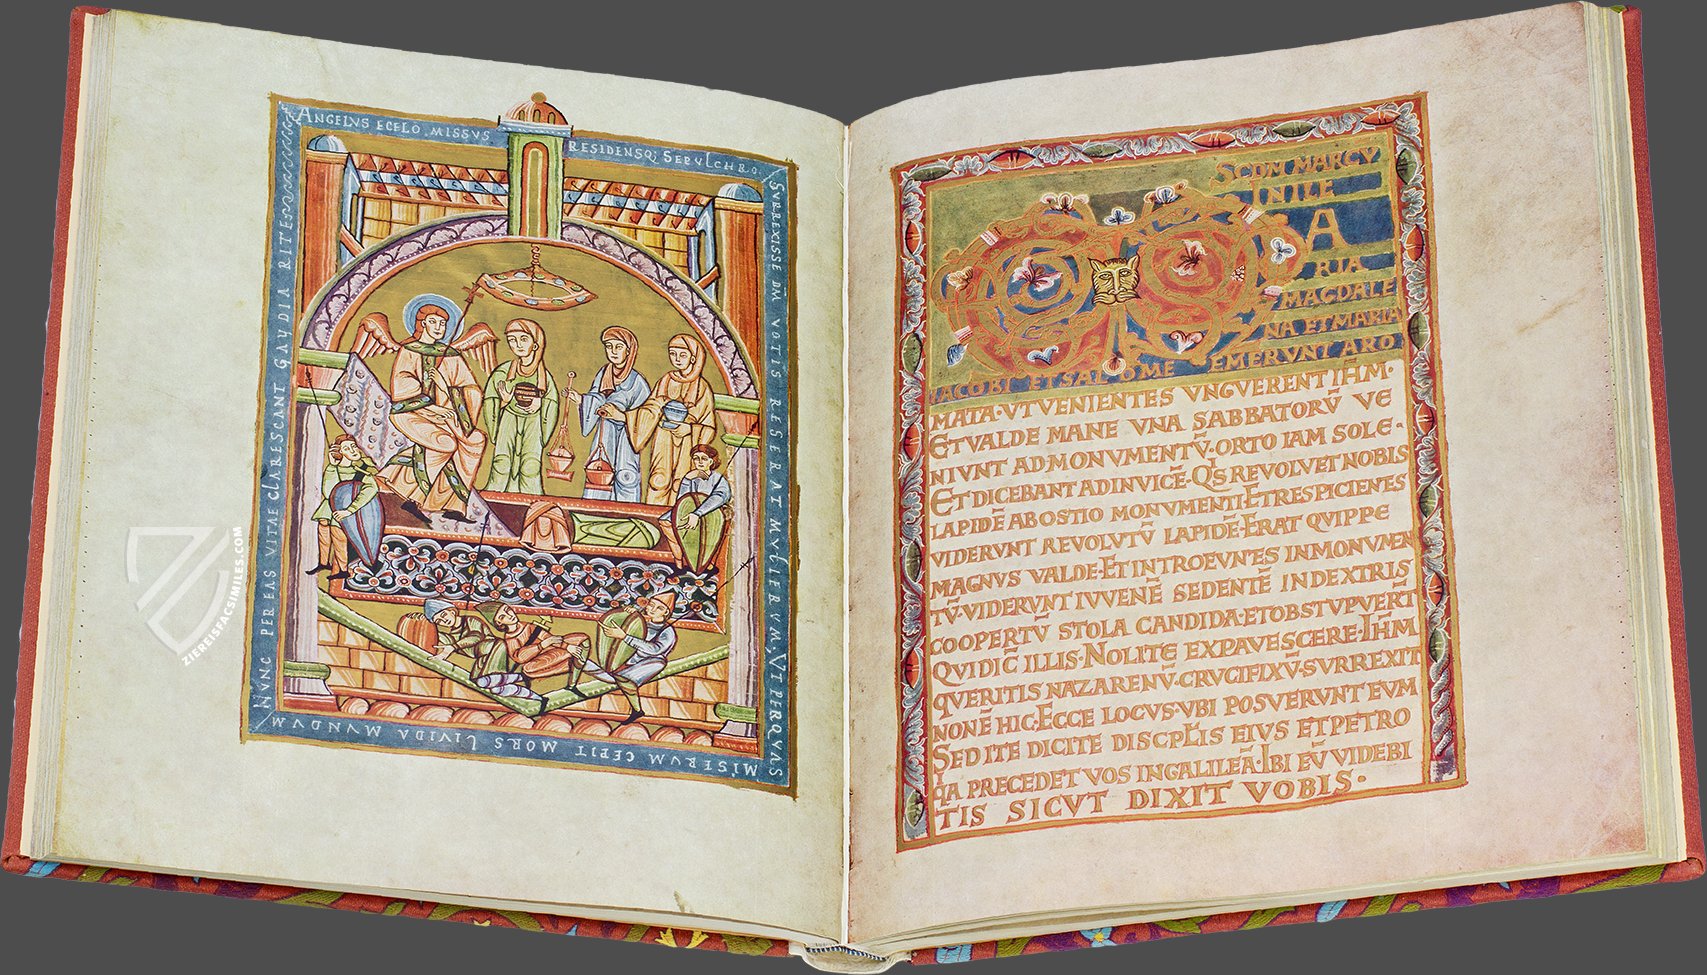 ANGELUS ECELO MISSVS
RESIDENSQ; SEPULCHRO
SURREXISSE DM̄ VOTIS RESERAT MULIERUM; UT PERQVAS
MISERUM CEPIT MORS LIVIDA MUNDUM
NUNC PER EAS VITAE CLARESCANT GAUDIA RITE
ZIEREISFACSIMILES.COM
SCDM MARCV
INILE
A
RIA
MAGDALE
NA ET MARIA
IACOBI ET SALOME EMERVNT ARO
MATA·VT VENIENTES VNGVERENT IHM·
ET VALDE MANE VNA SABBATORŪ VE
NIVNT AD MONVMENTŪ·ORTO IAM SOLE·
ET DICEBANT ADINVICĒ·QIS REVOLVET NOBIS
LAPIDĒ AB OSTIO MONVMENTI·ET RESPICIENES
VIDERVNT REVOLVTŪ LAPIDĒ·ERAT QVIPPE
MAGNVS VALDE·ET INTROEVNTES IN MONVMEN
TŪ·VIDERVNT IVVENĒ SEDENTĒ IN DEXTRIS
COOPERTŪ STOLA CANDIDA·ET OBSTVPVERT̄
QVI DIC̄ ILLIS·NOLITE EXPAVESCERE·IHM̄
QVERITIS NAZARENŪ·CRVCIFIXŪ·SVRREXIT
NON Ē HIC·ECCE LOCVS·VBI POSVERVNT EVM
SED ITE DICITE DISCPLIS EIVS ET PETRO
QA PRECEDET VOS IN GALILEĀ·IBI EŪ VIDEBI
TIS SICVT DIXIT VOBIS·